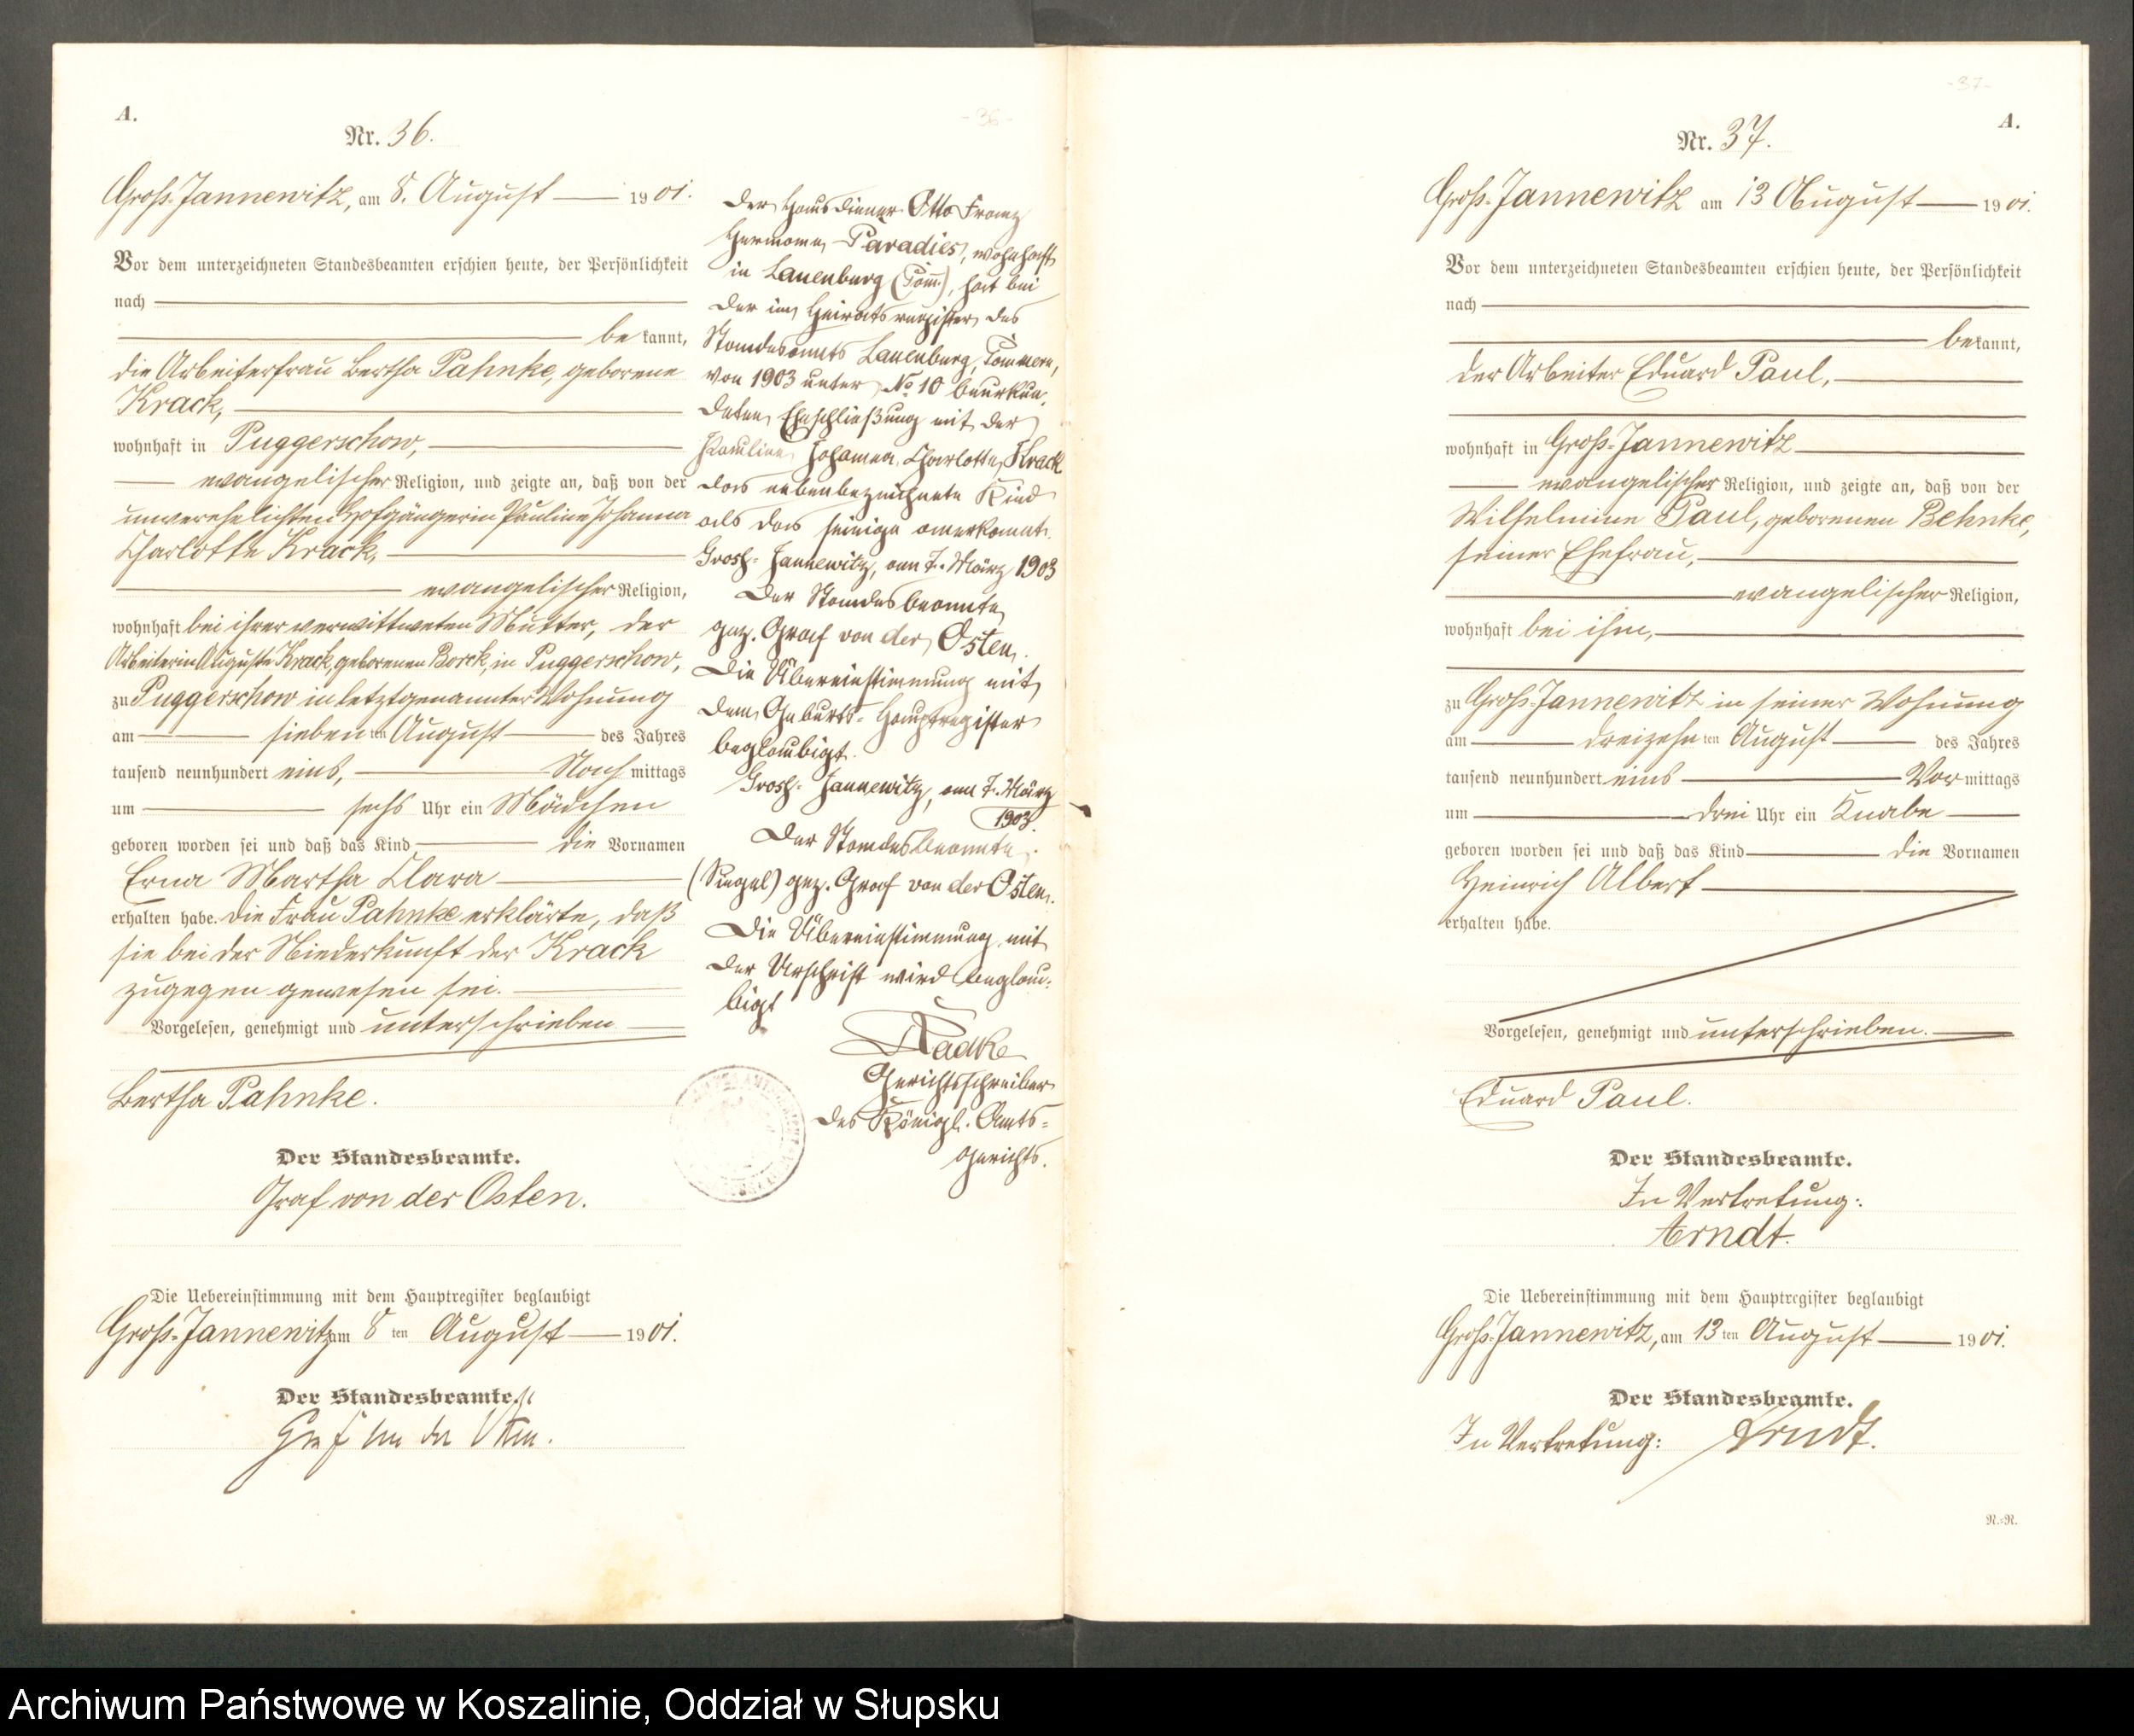 A.
Nr. 36.
- 36 -
Groß-Jannewitz, am 8. August 1901.
Vor dem unterzeichneten Standesbeamten erschien heute, der Persönlichkeit
nach
bekannt,
die Arbeiterfrau Bertha Pahnke, geborene
Krack,
wohnhaft in Puggerschow,
evangelischer Religion, und zeigte an, daß von der
unverehelichten Hofgängerin Pauline Johanna
Charlotte Krack,
evangelischer Religion,
wohnhaft bei ihrer verwittweten Mutter, der
Arbeiterin Auguste Krack, geborenen Borck, in Puggerschow,
zu Puggerschow in letztgenannter Wohnung
am sieben ten August des Jahres
tausend neunhundert eins, Nachmittags
um sechs Uhr ein Mädchen
geboren worden sei und daß das Kind die Vornamen
Erna Martha Clara
erhalten habe. Die Frau Pahnke erklärte, daß
sie bei der Niederkunft der Krack
zugegen gewesen sei.
Vorgelesen, genehmigt und unterschrieben
Bertha Pahnke.
Der Standesbeamte.
Graf von der Osten.
Die Uebereinstimmung mit dem Hauptregister beglaubigt
Groß-Jannewitz am 8 ten August 1901.
Der Standesbeamte.
Graf von der Osten.
Der Hausdiener Otto Franz
Hermann Paradies, wohnhaft
in Lauenburg (Pom̅), hat bei
der im Heiratsregister des
Standesamts Lauenburg, Pommern,
von 1903 unter No 10 beurkun-
deten Eheschließung mit der
Pauline Johanna Charlotte Krack
das nebenbezeichnete Kind
als das seinige anerkannt.
Gross-Jannewitz, am 7. März 1903
Der Standesbeamte
gez. Graf von der Osten.
Die Übereinstimmung mit
dem Geburts-Hauptregister
beglaubigt.
Gross-Jannewitz, am 7. März
1903.
Der Standesbeamte.
(Siegel) gez. Graf von der Osten.
Die Übereinstimmung mit
der Urschrift wird beglau-
bigt
Radke
Gerichtsschreiber
des Königl. Amts-
gerichts.
- 37 -
A.
Nr. 37.
Groß-Jannewitz am 13 August 1901.
Vor dem unterzeichneten Standesbeamten erschien heute, der Persönlichkeit
nach
bekannt,
der Arbeiter Eduard Paul,
wohnhaft in Groß-Jannewitz
evangelischer Religion, und zeigte an, daß von der
Wilhelmine Paul, geborenen Behnke,
seiner Ehefrau,
evangelischer Religion,
wohnhaft bei ihm,
zu Groß-Jannewitz in seiner Wohnung
am dreizehn ten August des Jahres
tausend neunhundert eins Vormittags
um drei Uhr ein Knabe
geboren worden sei und daß das Kind die Vornamen
Heinrich Albert
erhalten habe.
Vorgelesen, genehmigt und unterschrieben.
Eduard Paul.
Der Standesbeamte.
In Vertretung:
Arndt.
Die Uebereinstimmung mit dem Hauptregister beglaubigt
Groß-Jannewitz, am 13 ten August 1901.
Der Standesbeamte.
In Vertretung: Arndt.
N.-N.
Archiwum Państwowe w Koszalinie, Oddział w Słupsku